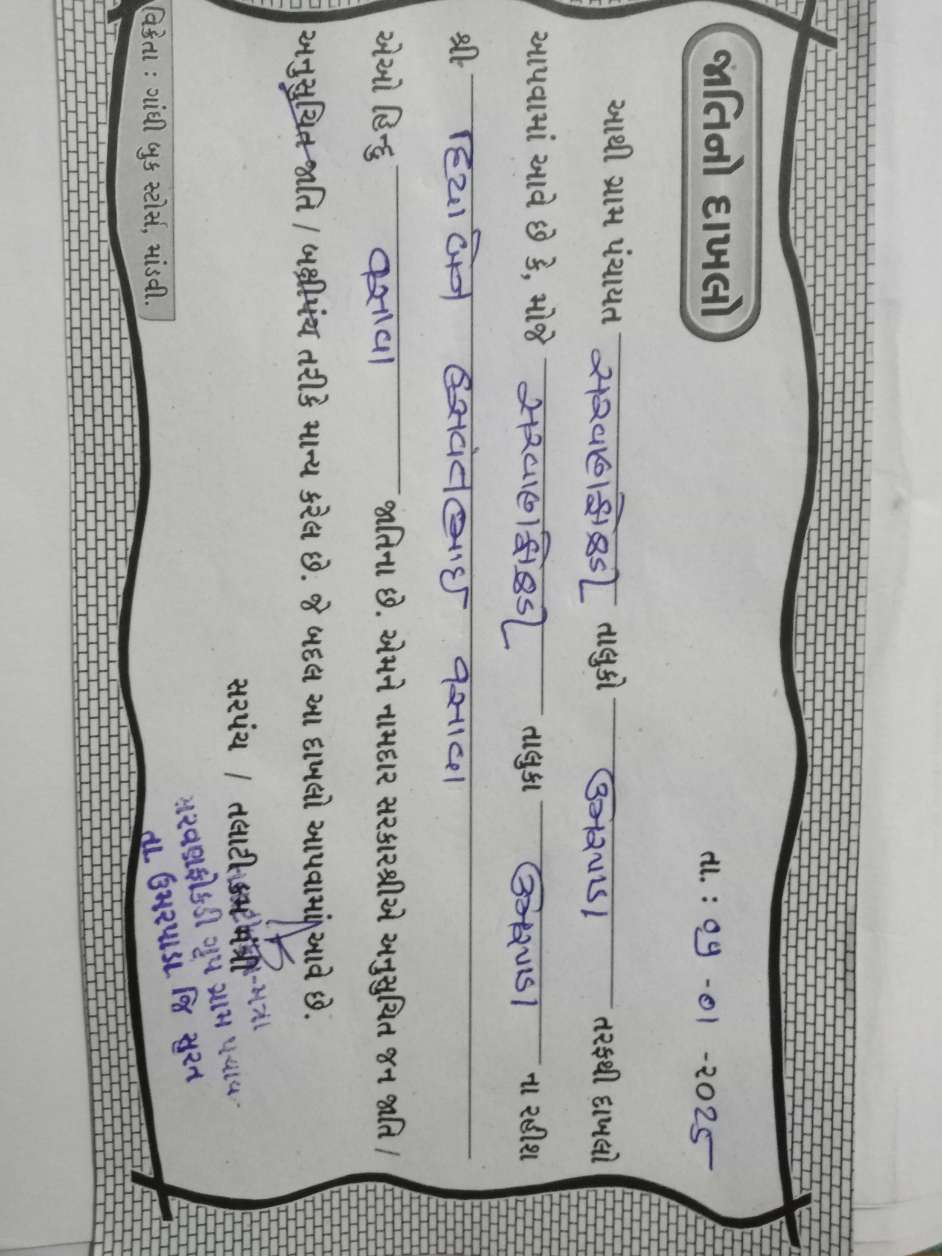 જાતિનો દાખલો
તા. : ૧૭ - ૦૧ - ૨૦૨૫
આથી ગ્રામ પંચાયત સરવણફોકડી તાલુકો ઉમરપાડા તરફથી દાખલો
આપવામાં આવે છે કે, મોજે સરવણફોકડી તાલુકા ઉમરપાડા ના રહીશ
શ્રી દિવ્યાબેન જશવંતભાઈ વસાવા
એઓ હિન્દુ વસાવા જાતિના છે. એમને નામદાર સરકારશ્રીએ અનુસુચિત જન જાતિ /
અનુસુચિત જાતિ / બક્ષીપંચ તરીકે માન્ય કરેલ છે. જે બદલ આ દાખલો આપવામાં આવે છે.
સરપંચ / તલાટી કમ મંત્રી
સરવણફોકડી ગૃપ ગ્રામ પંચાયત
તા. ઉમરપાડા જિ સુરત
વિક્રેતા : ગાંધી બુક સ્ટોર્સ, માંડવી.